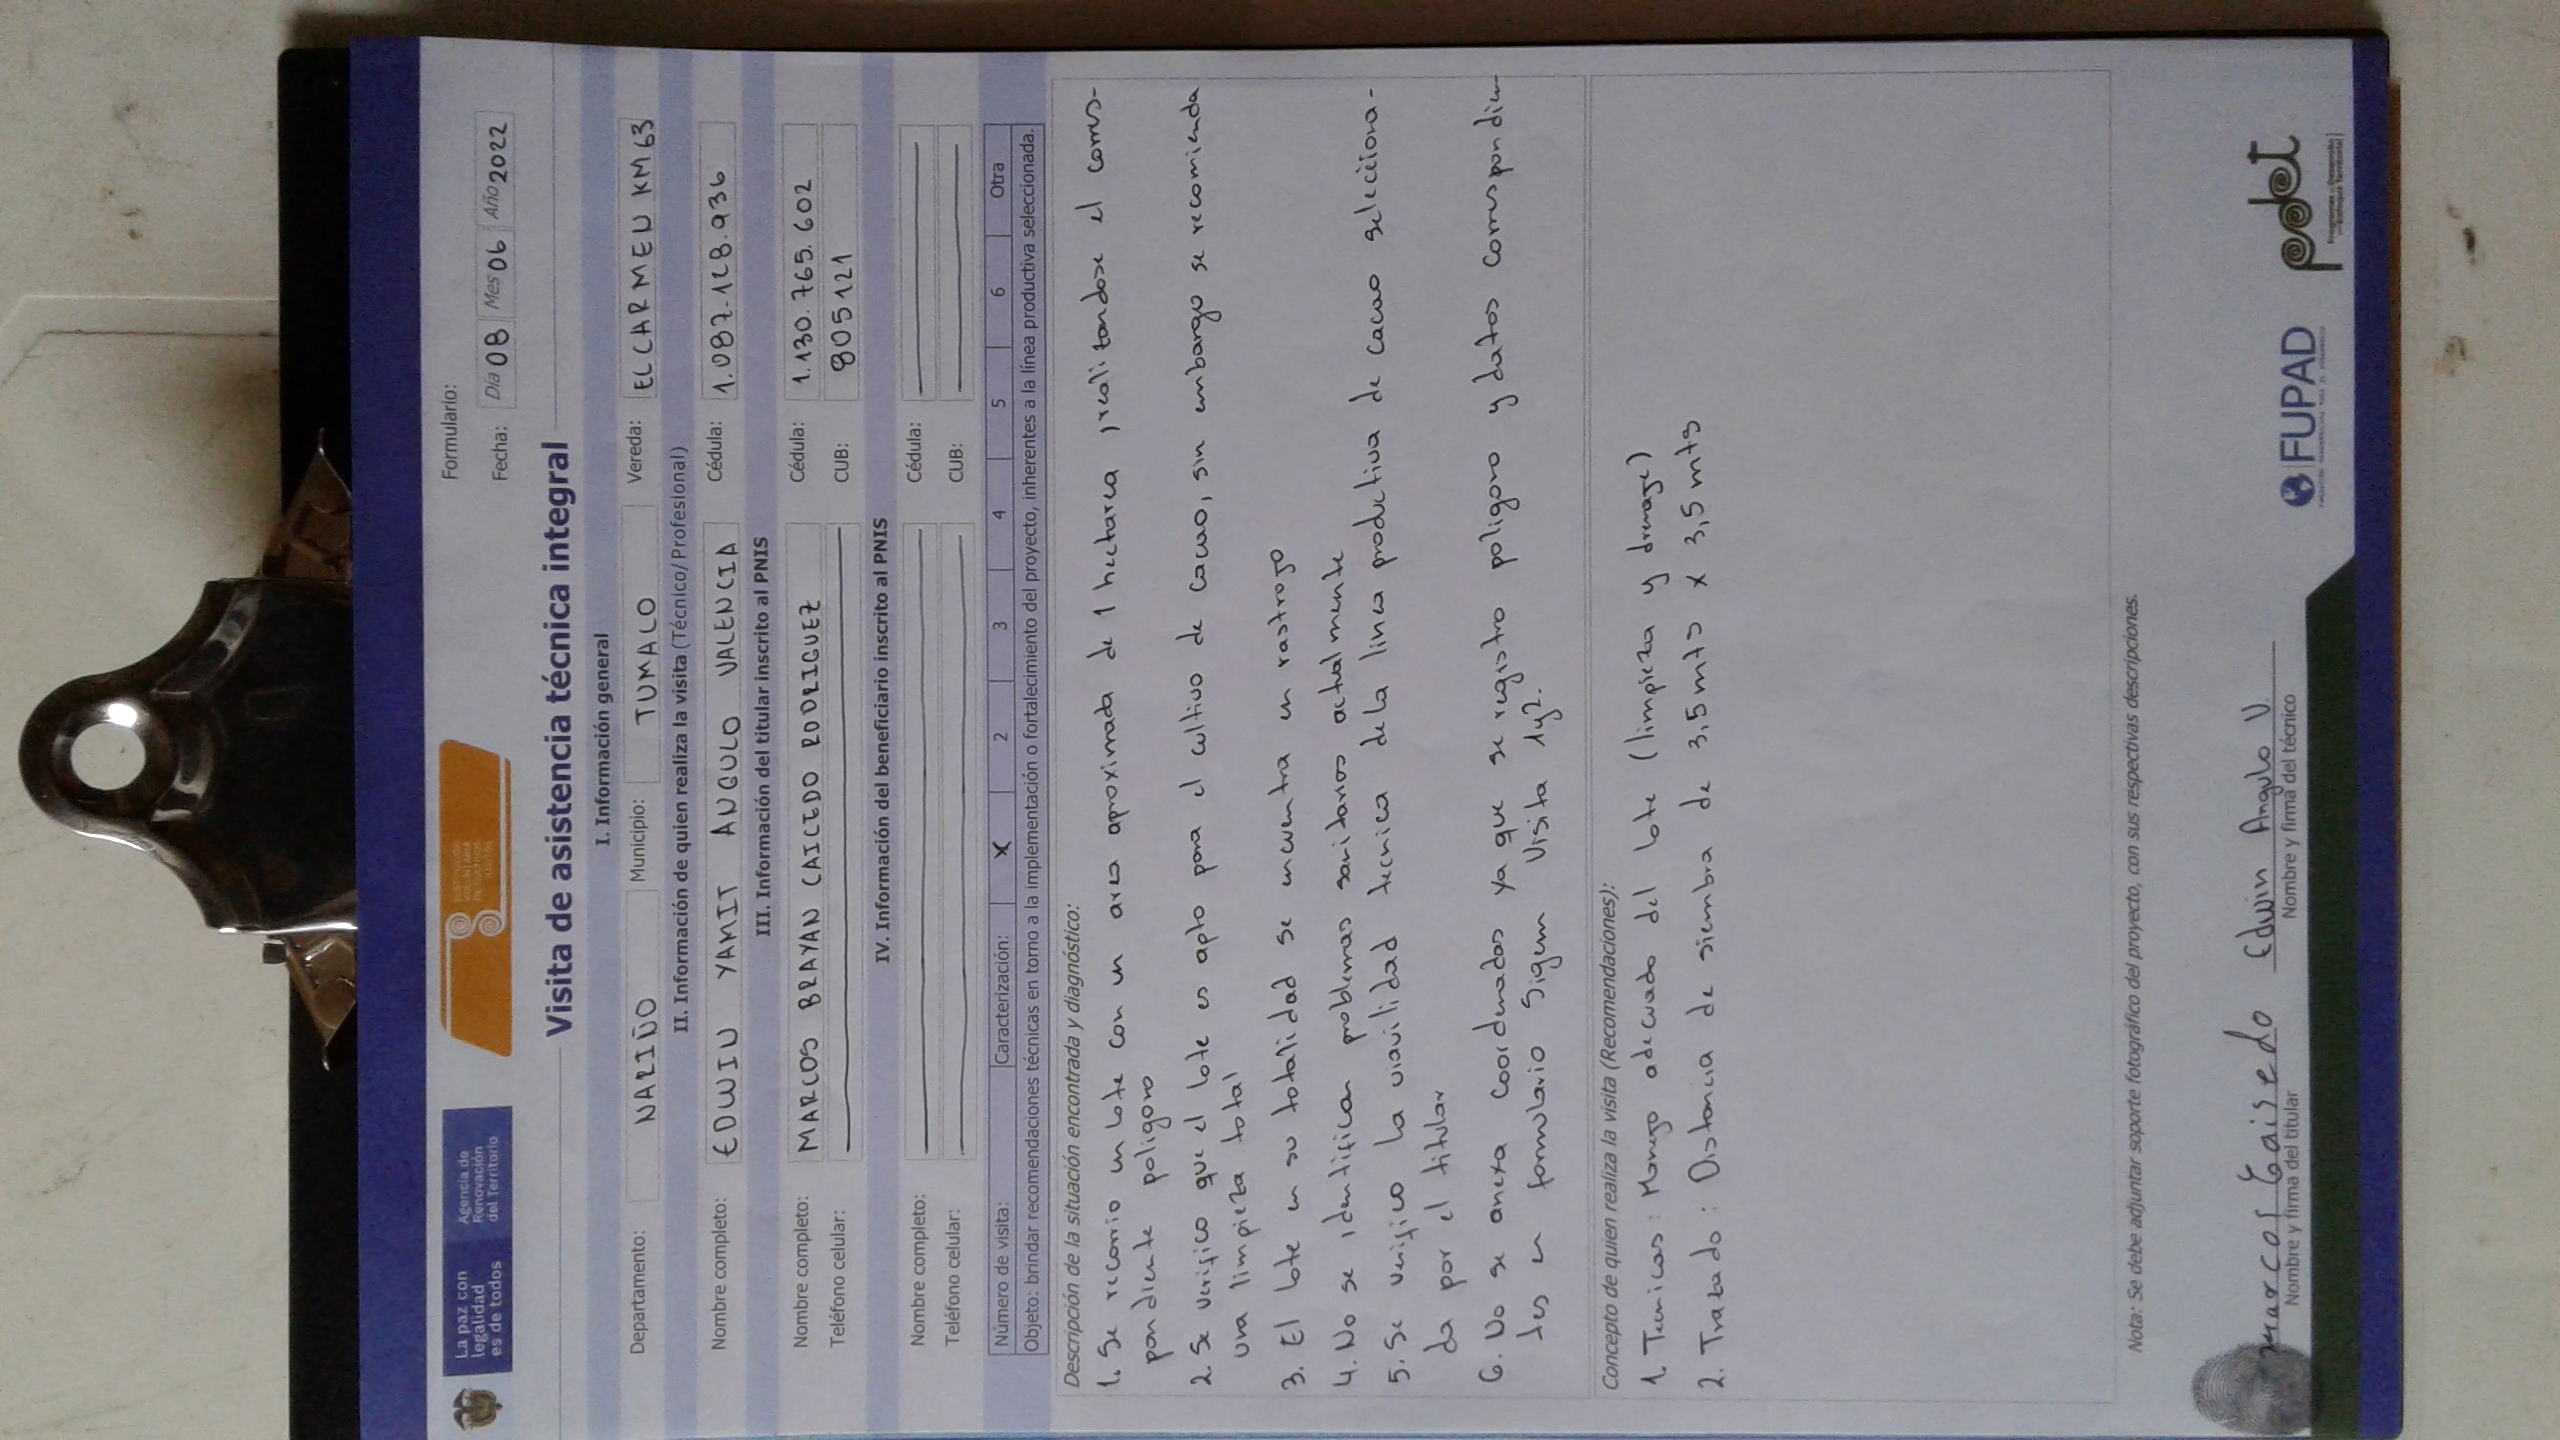 La paz con
legalidad
es de todos
Agencia de
Renovación
del Territorio
SUSTITUCIÓN
VOLUNTARIA
DE CULTIVOS
ILÍCITOS
Formulario:
Fecha: Día 08 Mes 06 Año 2022
Visita de asistencia técnica integral
I. Información general
Departamento: NARIÑO Municipio: TUMALO Vereda: EL CARMEN KM 63
II. Información de quien realiza la visita (Técnico/ Profesional)
Nombre completo: EDWIN YAMIT ANGULO VALENCIA Cédula: 1.087.128.936
III. Información del titular inscrito al PNIS
Nombre completo: MARCOS BRAYAN CAICEDO RODRIGUEZ Cédula: 1.130.765.602
Teléfono celular: CUB: 805121
IV. Información del beneficiario inscrito al PNIS
Nombre completo: Cédula:
Teléfono celular: CUB:
Número de visita: Caracterización: X 2 3 4 5 6 Otra
Objeto: brindar recomendaciones técnicas en torno a la implementación o fortalecimiento del proyecto, inherentes a la línea productiva seleccionada.
Descripción de la situación encontrada y diagnóstico:
1. Se recorrio un lote con un area aproximada de 1 hectarea, realitandose el corres-
pondiente poligono
2. Se verifico que el lote es apto para el cultivo de cacao, sin embargo se recomienda
una limpieza total
3. El lote en su totalidad se encuentra en rastrojo
4. No se identifica problemas sanitarios actualmente
5. Se verifico la viavilidad tecnica de la linea productiva de cacao selecciona-
da por el titular
6. No se anexa coordenadas ya que se registro poligono y datos correspondien-
tes en formulario Sigem Visita 1y2.
Concepto de quien realiza la visita (Recomendaciones):
1. Tecnicos: Manejo adecuado del lote (limpieza y drenaje)
2. Trazado: Distancia de siembra de 3,5 mts x 3,5 mts
Nota: Se debe adjuntar soporte fotográfico del proyecto, con sus respectivas descripciones.
Marcos Caisedo Edwin Angulo V.
Nombre y firma del titular Nombre y firma del técnico
FUPAD
pdet
Programas de Desarrollo
con Enfoque Territorial